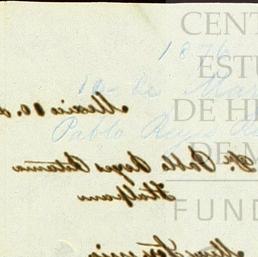 CENT
1876
ESTU
10 de Mar
DE HI
Mexico 10. d
Pablo Reyes Re
DE M
Sr. Pablo Reyes Retama
Tlalpam
FUND